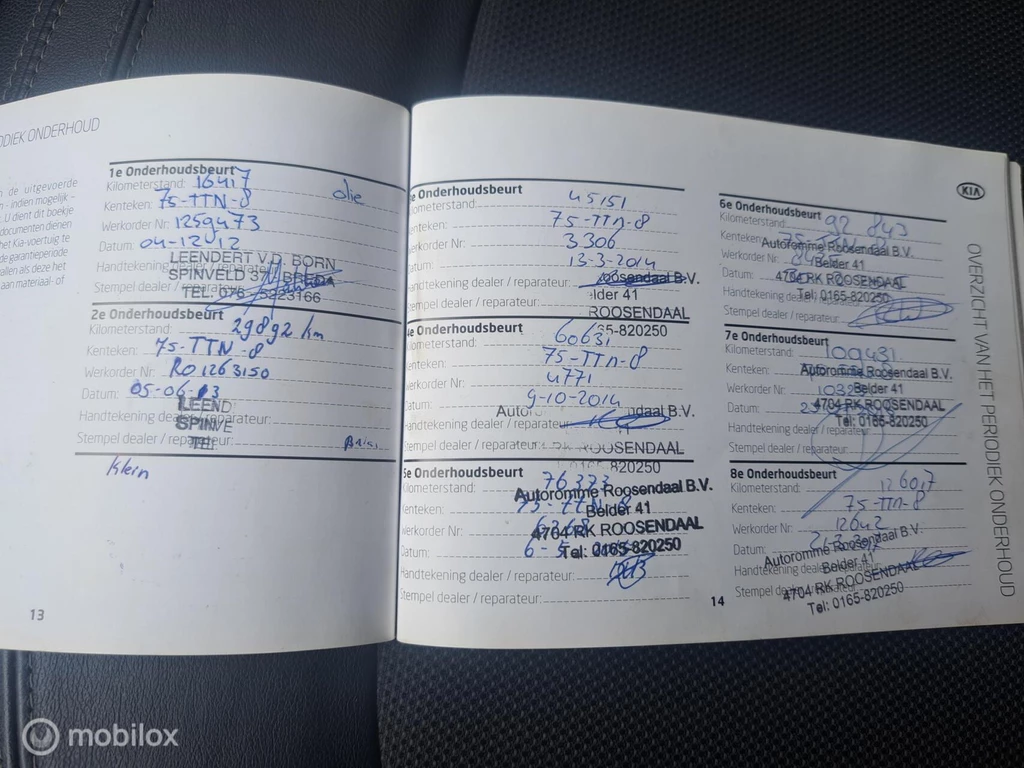 ODIEK ONDERHOUD
n de uitgevoerde
n - indien mogelijk –
. U dient dit boekje
documenten dienen
het Kia-voertuig te
de garantieperiode
vallen als deze het
aan materiaal- of
1e Onderhoudsbeurt
Kilometerstand: 16417 olie
Kenteken: 75-TTN-8
Werkorder Nr: 1259473
Datum: 04-12-'12
LEENDERT V.D. BORN
Handtekening dealer / reparateur:
SPINVELD 37 BREDA
Stempel dealer / reparateur:
TEL. 076-5223166
2e Onderhoudsbeurt
Kilometerstand: 29892 km
Kenteken: 75-TTN-8
Werkorder Nr: RO1263150
Datum: 05-06-13
LEEND
Handtekening dealer / reparateur:
SPINVE
Stempel dealer / reparateur:
TEL
Klein
13
e Onderhoudsbeurt
ilometerstand: 45151
enteken: 75-TTN-8
erkorder Nr: 3306
atum: 13-3-2014
andtekening dealer / reparateur:
oosendaal B.V.
elder 41
tempel dealer / reparateur:
ROOSENDAAL
65-820250
4e Onderhoudsbeurt
ilometerstand: 60631
enteken: 75-TTN-8
erkorder Nr: 4771
atum: 9-10-2014
Autor ndaal B.V.
andtekening dealer / reparateur:
tempel dealer / reparateur:
RK ROOSENDAAL
0165-820250
5e Onderhoudsbeurt
Kilometerstand: 76373
Autoromme Roosendaal B.V.
Kenteken: 75-TTN-8
Belder 41
Werkorder Nr: 6268
4704 RK ROOSENDAAL
Datum: 6-5
Tel: 0165-820250
Handtekening dealer / reparateur:
Stempel dealer / reparateur:
14
6e Onderhoudsbeurt
Kilometerstand: 92 843
Kenteken: 75
Autoromme Roosendaal B.V.
Werkorder Nr:
Belder 41
Datum:
4704 RK ROOSENDAAL
Handtekening dealer
Tel: 0165-820250
Stempel dealer / reparateur:
7e Onderhoudsbeurt
Kilometerstand: 109431
Kenteken:
Autoromme Roosendaal B.V.
Werkorder Nr:
Belder 41
Datum:
4704 RK ROOSENDAAL
Tel: 0165-820250
Handtekening dealer / reparateur:
Stempel dealer / reparateur:
8e Onderhoudsbeurt
Kilometerstand: 126017
Kenteken: 75-TTN-8
Werkorder Nr: 12642
Datum:
Autoromme Roosendaal B.V.
Handtekening dealer
Belder 41
4704 RK ROOSENDAAL
Stempel dealer
Tel: 0165-820250
KIA
OVERZICHT VAN HET PERIODIEK ONDERHOUD
mobilox